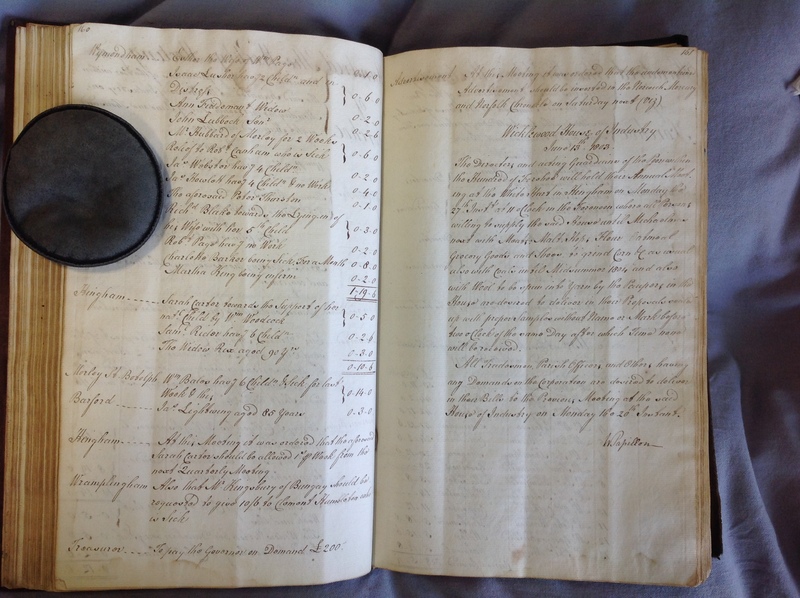 160
Wymondham Esther the Wife of Wm Page
Isaac Lusher havg 2 Childn and in
Distress 0-6-0
Ann Widow 0-2-0
John Lubbock Senr 0-2-6
Mr Hubbard of Morley for 2 Weeks
Relief to Robt Canham who is Sick 0-6-0
Jas Webster havg 4 Childn 0-2-0
Jas Howlett havg 4 Childn & no Work 0-4-0
The aforesaid Peter Thurston 0-1-0
Richd Blake towards the Lying in of
his Wife with her 5th Child 0-3-0
Robt Page havg no Work 0-2-0
Charlotte Barker being Sick for a Month 0-8-0
Martha Ring being infirm 0-2-0
1-19-6
Hingham Sarah Carter towards the Support of her
natl Child by Wm Woodcock 0-5-0
Saml Rector havg 6 Childn 0-2-6
The Widow Rix aged 90 Yrs 0-3-0
0-10-6
Morley St Botolph Wm Bales havg 6 Childn & Sick for last
Week & this 0-14-0
Barford Jas Lightwing aged 85 Years 0-3-0
Hingham At this Meeting it was ordered that the aforesaid
Sarah Carter should be allowed 1s/ Week from the
next Quarterly Meeting.
Wramplingham Also that Mr Kingsbury of Bungay should be
requested to give 10/6 to Clement who
is Sick
Treasurer To pay the Governor on Demand £200
161
Advertisement At this Meeting it was ordered that the underwritten
Advertisement should be inserted in the Norwich Mercury
and Norfolk Chronicle on Saturday next
Wicklewood House of Industry
June 13th 1803
The Directors and acting Guardians of the Poor within
the Hundred of Forehoe will hold their Annual Meet
ing at the White Hart in Hingham on Monday the
27th Inst at 11 o'Clock in the Forenoon where all Persons
willing to supply the said House until Michaelmas
next with Meat, Malt, Hops, Flour, Oatmeal
Grocery Goods and Shoes, to grind Corn &c as usual
also with Coals until Midsummer 1804 and also
with Wool to be spun into Yarn by the Paupers in the
House are desired to deliver in their Proposals sealed
up with proper Samples without Name or Mark before
two o'Clock of the same Day after which Time none
will be received.
All Tradesmen, Parish Officers and Others having
any Demands on the Corporation are desired to deliver
in their Bills to the previous Meeting at the said
House of Industry on Monday the 20th Instant.
W Papillon